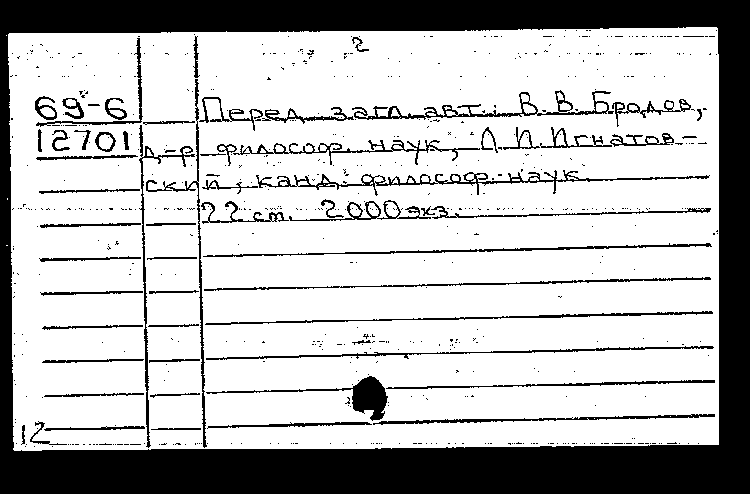 2
69-6 Перед загл. авт.: В. В. Бродов,
12701 д-р философ. наук, Л. П. Игнатов-
ский, канд. философ. наук.
22 ст. 2000 экз.
12